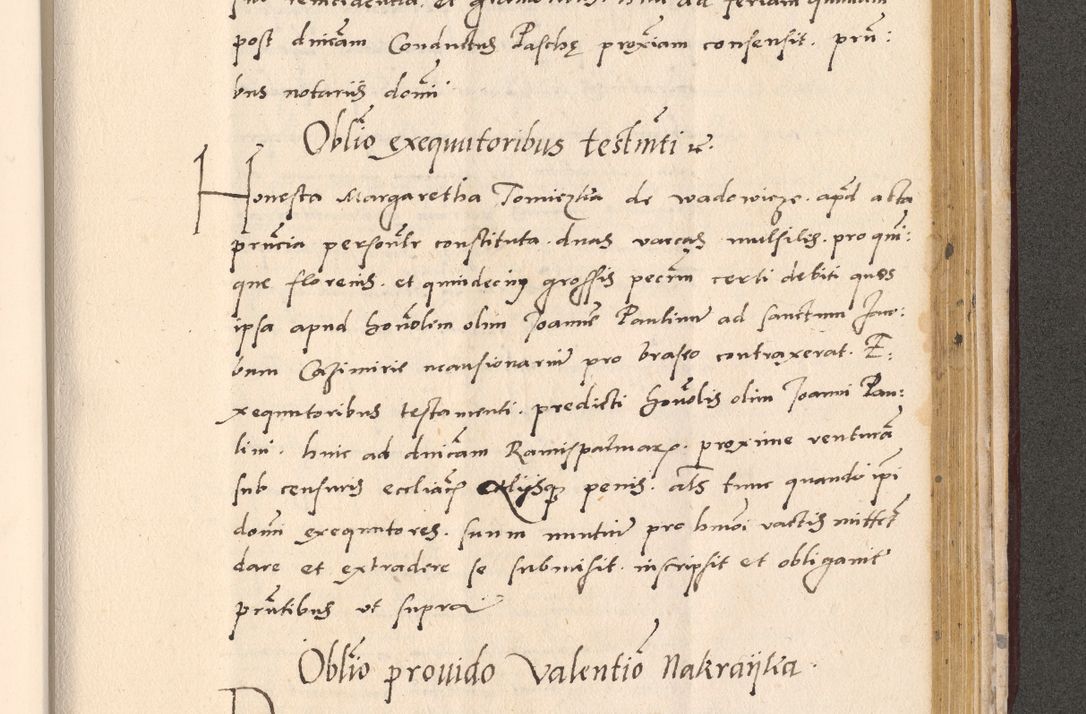 post dnicam Conductus Paschę proxiam consensit. prñ:
bus notariis domi
Oblio exequutoribus testmti &c.
Honesta Margaretha Tomiczka de wadowicze. apd acta
prñcia personlr constituta. duas vaccas mulsiles. pro quin:
que florenis. et quindecim grossis pecum certi debiti quos
ipsa apud honolem olim Joannē Paulinū ad sanctum Jaco:
bum Casimirie mansionariū pro braseo contraxerat. E:
xequutoribus testamenti. predicti honolis olim Joanni Pau:
lini. hinc ad dnicam Ramispalmarum. proxime venturā
sub censuris eccliacis aliisque penis. als tunc quando ipi
domi exequutores. suum nuntiū pro hmoi vaccis mittent
dare et extradere se submisit. inscripsit et obligavit
prñtibus ut supra
Oblio provido Valentino Nakraiika.